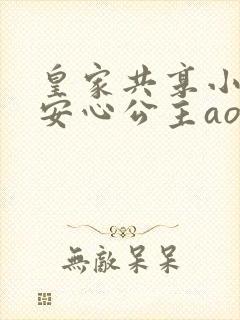 皇家共享小
安心公主ao
無敵呆呆